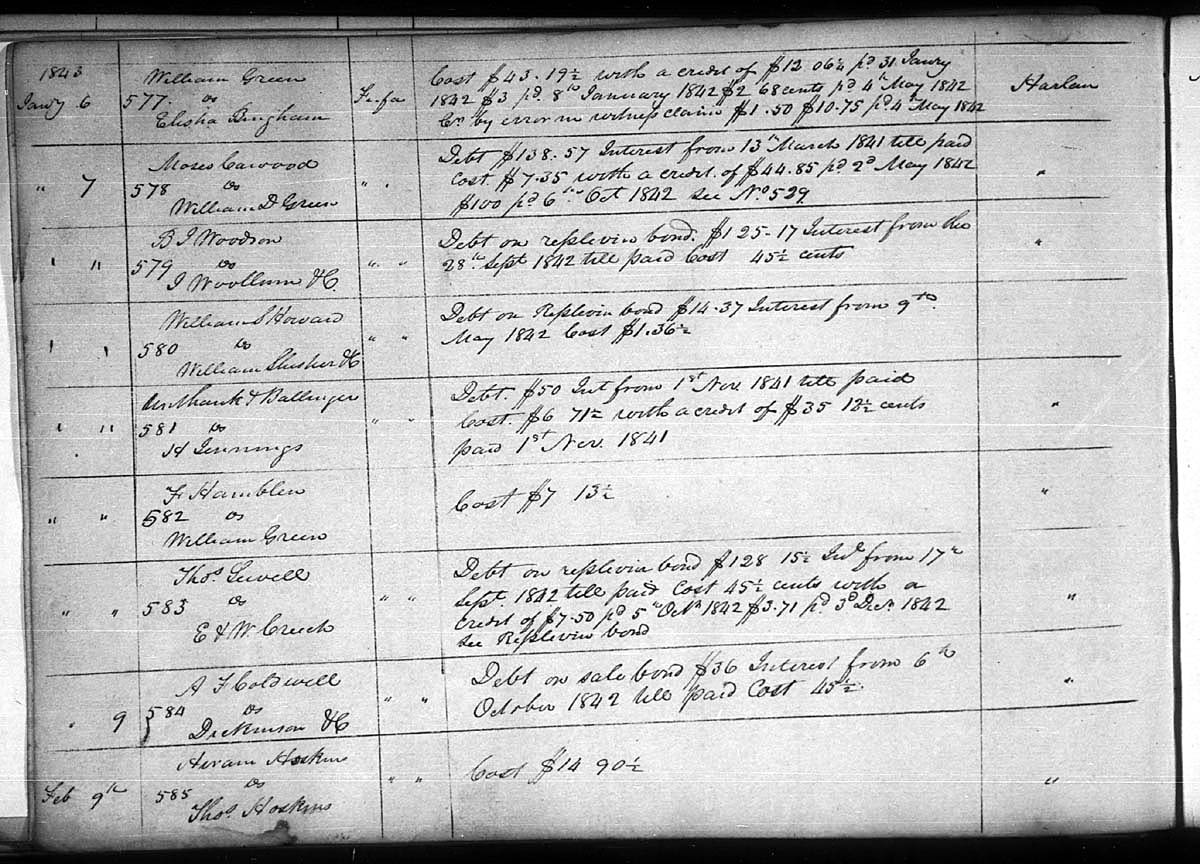 1843
William Green
Jany 6 577. vs Fi-fa
Elisha Bingham
Cost $43.19½ with a credit of $12 06¼ pd 31 Jany
1842 $3 pd. 8th January 1842 $2 68 cents pd 4th May 1842
Cr. by error in witness claim $1.50 $10.75 pd 4th May 1842
Harlan
Moses Cawood
" 7 578 vs " "
William D Green
Debt $138.57 Interest from 13th March 1841 till paid
Cost $7.35 with a credit of $44.85 pd 2d May 1842
$100 pd 6th Oct 1842 see No 529
"
B J Woodson
" " 579 vs " "
J Woollum &C
Debt on replevin bond. $125.17 Interest from the
28th Sept 1842 till paid Cost 45½ cents
"
William S Howard
" " 580 vs " "
William &C
Debt on Replevin bond $14.37 Interest from 9th
May 1842 Cost $1.36½
& Ballinger
" " 581 vs " "
H Jennings
Debt. $50 Int from 1st Nov. 1841 till paid
Cost. $6 71½ with a credit of $35 12½ cents
paid 1st Nov. 1841
"
F Hamblen
" " 582 vs
William Green
Cost $7 13½
"
Thos Sewell
" " 583 vs " "
E & W. Creech
Debt on replevin bond $128 15½ Int from 17th
Sept. 1842 till paid Cost 45½ cents with a
Credit of $7.50 pd 5th Octr 1842 $3.71 pd 3d Decr 1842
see Replevin bond
"
A F Coldwell
" 9 584 vs " "
Dickinson &C
Debt on sale bond $36 Interest from 6th
October 1842 till paid Cost 45½
"
Hiram Hoskins
Feb 9th 585 vs " "
Thos Hoskins
Cost $14 90½
"